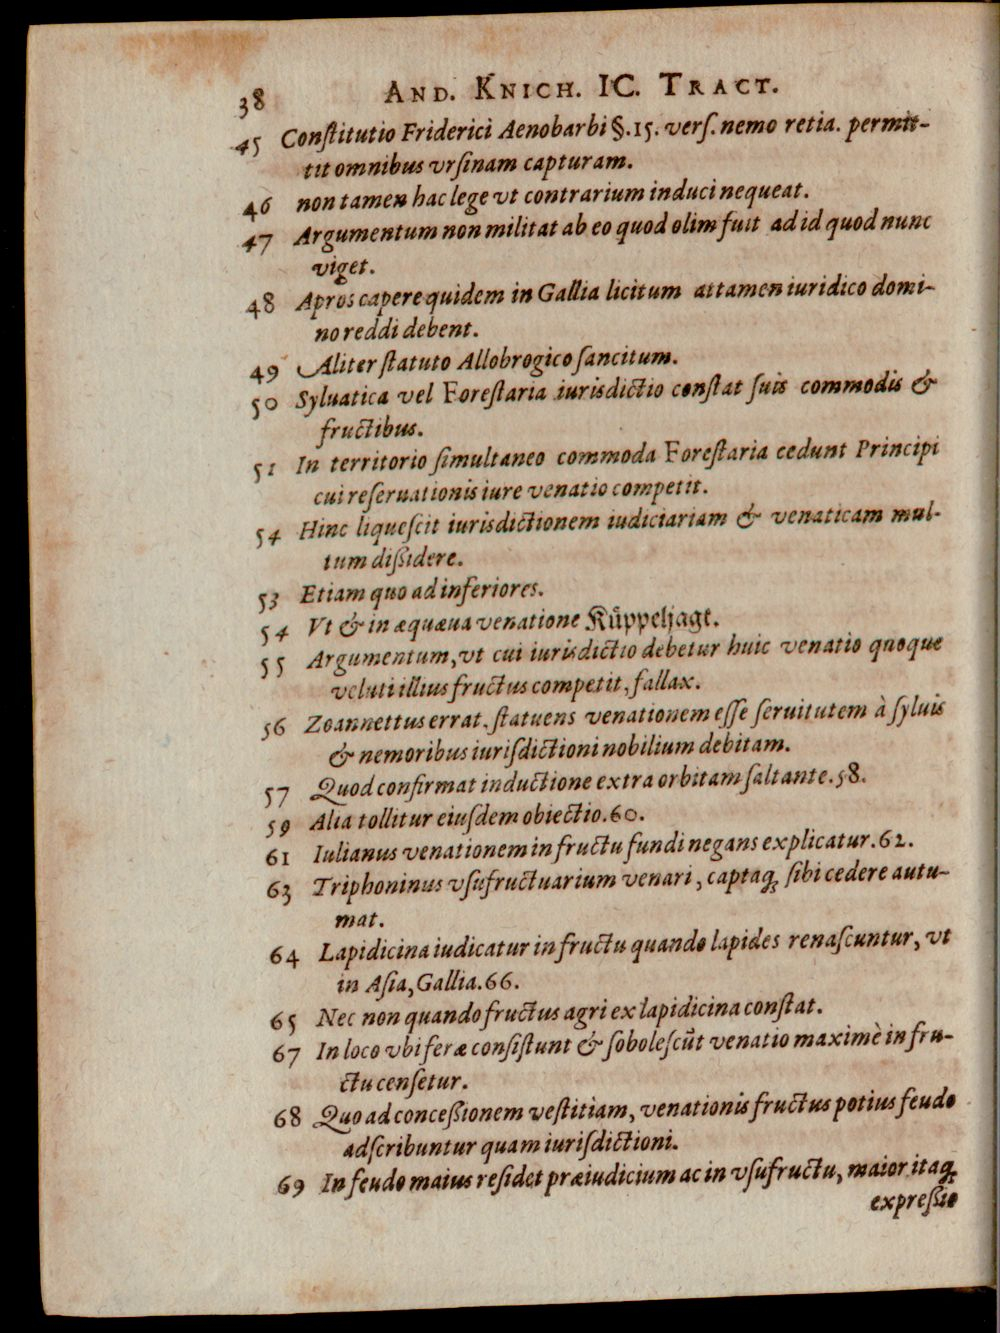 38 AND. KNICH. IC. TRACT.
45 Conſtitutio Friderici Aenobarbi §.15. verſ. nemo retia. permit-
tit omnibus vrſinam capturam.
46 non tamen hac lege vt contrarium induci nequeat.
47 Argumentum non militat ab eo quod olim fuit ad id quod nunc
viget.
48 Apros capere quidem in Gallia licitum attamen iuridico domi-
no reddi debent.
49 Aliter ſtatuto Allobrogico ſancitum.
50 Syluatica vel Foreſtaria iurisdictio conſtat ſuis commodis &
fructibus.
51 In territorio ſimultaneo commoda Foreſtaria cedunt Principi
cui reſeruationis iure venatio competit.
54 Hinc liqueſcit iurisdictionem iudiciariam & venaticam mul-
tum diſsidere.
53 Etiam quo ad inferiores.
54 Vt & in æquæua venatione Kuͤppeljagt.
55 Argumentum, vt cui iurisdictio debetur huic venatio quoque
veluti illius fructus competit, fallax.
56 Zoannettus errat. ſtatuens venationem eſſe ſeruitutem à ſyluis
& nemoribus iuriſdictioni nobilium debitam.
57 Quod confirmat inductione extra orbitam ſaltante. 58.
59 Alia tollitur eiuſdem obiectio. 60.
61 Iulianus venationem in fructu fundi negans explicatur. 62.
63 Triphoninus vſufructuarium venari, captaq; ſibi cedere autu-
mat.
64 Lapidicina iudicatur in fructu quando lapides renaſcuntur, vt
in Aſia, Gallia. 66.
65 Nec non quando fructus agri ex lapidicina conſtat.
67 In loco vbi feræ conſiſtunt & ſoboleſcūt venatio maximè in fru-
ctu cenſetur.
68 Quo ad conceſsionem veſtitiam, venationis fructus potius feudo
adſcribuntur quam iuriſdictioni.
69 In feudo maius reſidet præiudicium ac in vſufructu, maior itaq;
expreſsio